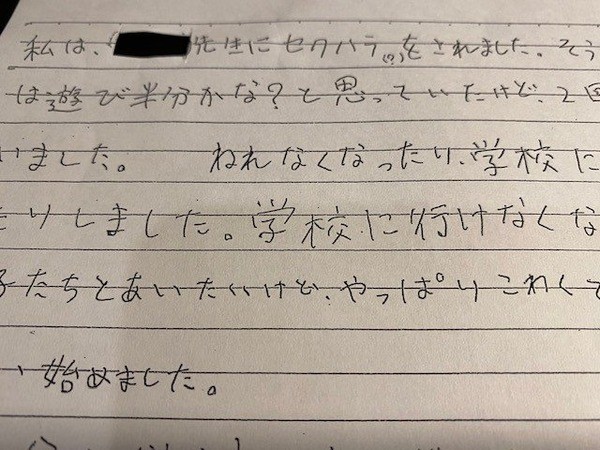 私は、先生にセクハラ(?)をされました。そう
は遊び半分かな?と思っていたけど、2回
いました。 ねれなくなったり、学校に
たりしました。学校に行けなくな
子たちとあいたいけど、やっぱりこわくて
、始めました。